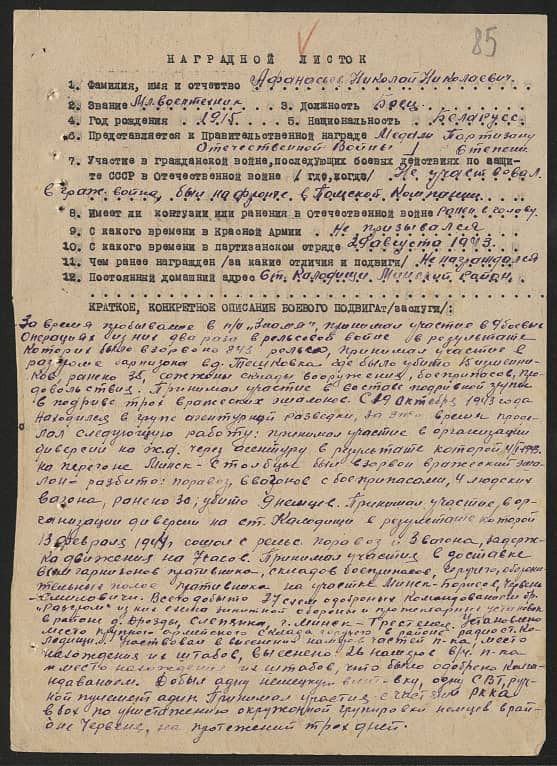 85
НАГРАДНОЙ ЛИСТОК
1. Фамилия, имя и отчество Афанасьев Николай Николаевич.
2. Звание Мл. воентехник 3. Должность Боец
4. Год рождения 1915 5. Национальность Беларусс.
6. Представляется к Правительственной награде Медали Партизану
Отечественной Войны I степени
7. Участие в гражданской войне, последующих боевых действиях по защи-
те СССР в Отечественной войне /где, когда/ Не участвовал
в граж. война, был на фронте в Польской Компании
8. Имеет ли контузии или ранения в Отечественной войне ранен в голову
9. С какого времени в Красной Армии Не призывался
10. С какого времени в партизанском отряде 29 августа 1943.
11. Чем ранее награжден /за какие отличия и подвиги/ Не награждался
12. Постоянный домашний адрес ст. Калодищи Минский район.
КРАТКОЕ, КОНКРЕТНОЕ ОПИСАНИЕ БОЕВОГО ПОДВИГА /заслуги/:
За время пребывание в п/о "Знамя", принимал участие в 9 боевых
Операциях из них два раза в рельсовой войне в результате
которых было взорвано 843 рельса, принимал участие в
разгроме гарнизона в д. где было убито
ков, ранено 38, сажжены склады вооружения, боеприпасов, про-
довольствия. Принимал участие в составе подривной групы
в подриве трох вражеских эшалонов. С 19 октября 1943 года
находился в групе агентурной разведки, за это время проде-
лал следующую работу: принимал участие в организации
диверсии на ж.д. через агентуру в результате которой
на перегоне Минск-Столбцы был взорван вражеский эша-
лон- разбито: паровоз, вагонов с боеприпасами, 4 людских
вагона, ранено 30, убито 9 немцев. Принимал участие в ор-
ганизации диверсии на ст. Калодищи в результате которой
13 февраля 1944 сошол с рельс. паровоз и 3 вагона, задерж-
ка движения на 7 часов. Принимал участия в доставке
схем гарнизонов противника, складов боеприпасов, оборони-
тельных полос противника на участке Минск-Борисов, Червень
-Смиловичи. Всего добыто 27 схем одобренные Командованием бр.
"Разгром" из них схема зенитной обороны и
в районе д. Дрозды, Слепянка, г. Минск- Тростенец. Установлено
место крупного армейского склада в районе разъезд. Ко-
лодищи. Участвовал в выяснении номеров частей п-ка, место
нахождения их штабов, выяснено 26 номеров в/ч. п-ка
и место нахождения их штабов, что было одобрено кома-
ндаванием. Добыл адну немецкую винтовку, одну СВТ, руч-
ной пулемет адин. Принимал участия с частями РККА
в боях по уничтожению окружонной групировки немцев врай-
оне Червене, на протяжений трох дней.